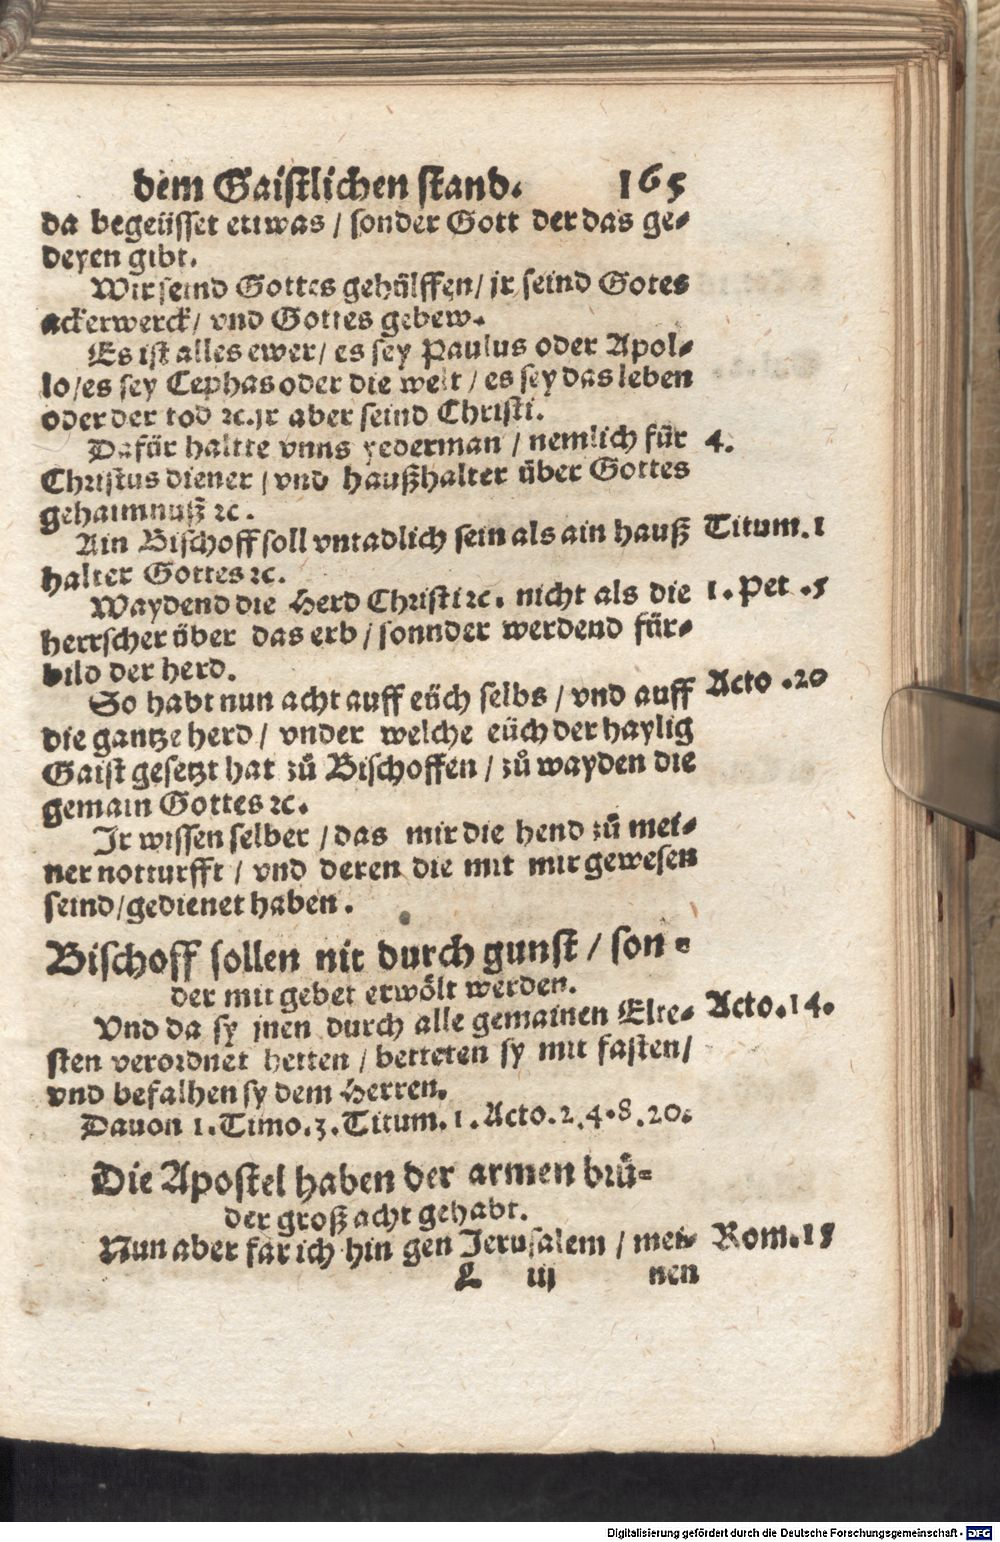 dem Gaistlichen stand. 165
da begeüsset ettwas / sonder Gott der das ge-
deyen gibt.
Wir seind Gottes gehülffen / jr seind Gotes
ackerwerck / vnd Gottes gebew.
Es ist alles ewer / es sey Paulus oder Apol-
lo / es sey Cephas oder die welt / es sey das leben
oder der tod ꝛc. jr aber seind Christi.
Dafür haltte vnns yederman / nemlich für 4.
Christus diener / vnd haußhalter über Gottes
gehaimnuß ꝛc.
Ain Bischoff soll vntadlich sein als ain hauß Titum. 1
halter Gottes ꝛc.
Waydend die Herd Christi ꝛc. nicht als die 1. Pet. 5
herrscher über das erb / sonnder werdend für-
bild der herd.
So habt nun acht auff eüch selbs / vnd auff Acto. 20
die gantze herd / vnder welche eüch der haylig
Gaist gesetzt hat zů Bischoffen / zů wayden die
gemain Gottes ꝛc.
Jr wissen selber / das mir die hend zů mei-
ner notturfft / vnd deren die mit mir gewesen
seind / gedienet haben.
Bischoff sollen nit durch gunst / son-
der mit gebet erwölt werden.
Vnd da sy jnen durch alle gemainen Elte- Acto. 14.
sten verordnet hetten / betteten sy mit fasten /
vnd befalhen sy dem Herren.
Dauon 1. Timo. 3. Titum. 1. Acto. 2. 4. 8. 20.
Die Apostel haben der armen brü-
der groß acht gehabt.
Nun aber far ich hin gen Jerusalem / mei- Rom. 15
L iij nen
Digitalisierung gefördert durch die Deutsche Forschungsgemeinschaft - DFG